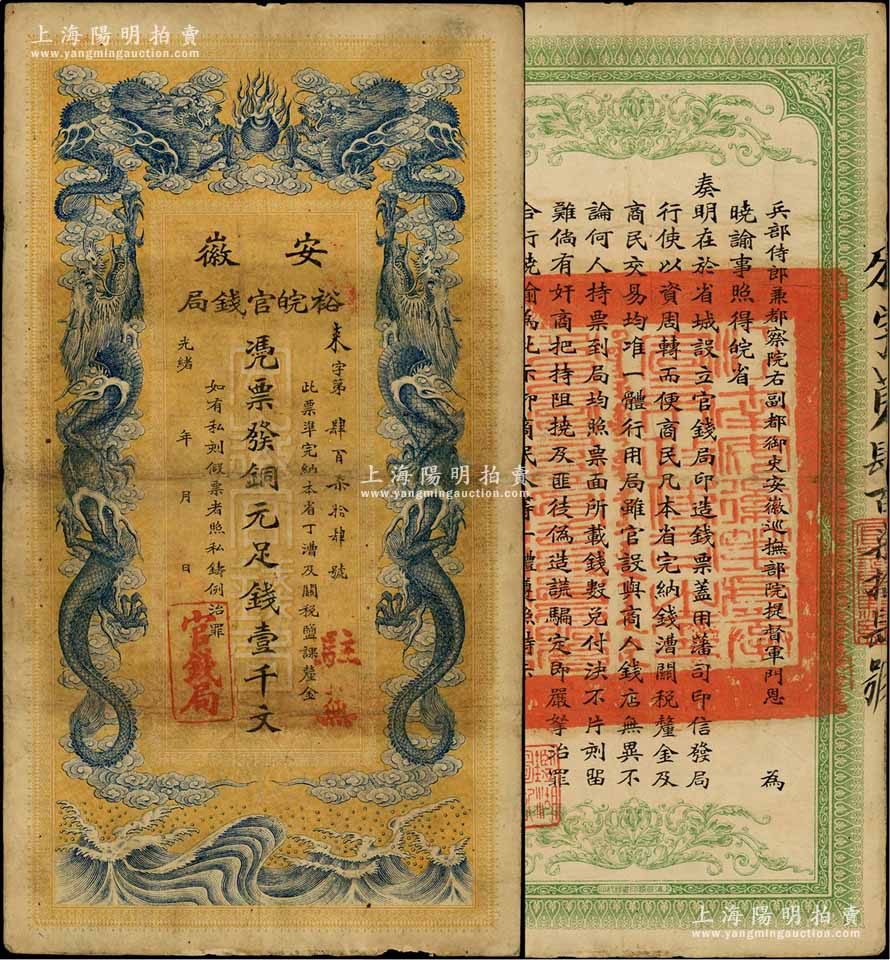 上海陽明拍賣
www.yangmingauction.com
安徽
裕皖官錢局
來字第肆百柒拾肆號
此票準完納本省丁漕及關稅鹽課釐金
憑票發銅元足錢壹千文
如有私刻假票者照私鑄例治罪
光緒 年 月 日
駐蕪
官錢局
上海陽明拍賣
www.yangmingauction.com
兵部侍郎兼都察院右副都御史安徽巡撫部院提督軍門恩 為
曉諭事照得皖省
奏明在於省城設立官錢局印造錢票蓋用藩司印信發局
行使以資周轉而便商民凡本省完納錢漕關稅釐金及
商民交易均准一體行用局雖官設與商人錢店無異不
論何人持票到局均照票面所載錢數兌付決不片刻留
難倘有奸商把持阻撓及匪徒偽造謊騙定即嚴拏治罪
合行曉諭為此示仰商民人等一體遵照特示
上海陽明拍賣
www.yangmingauction.com